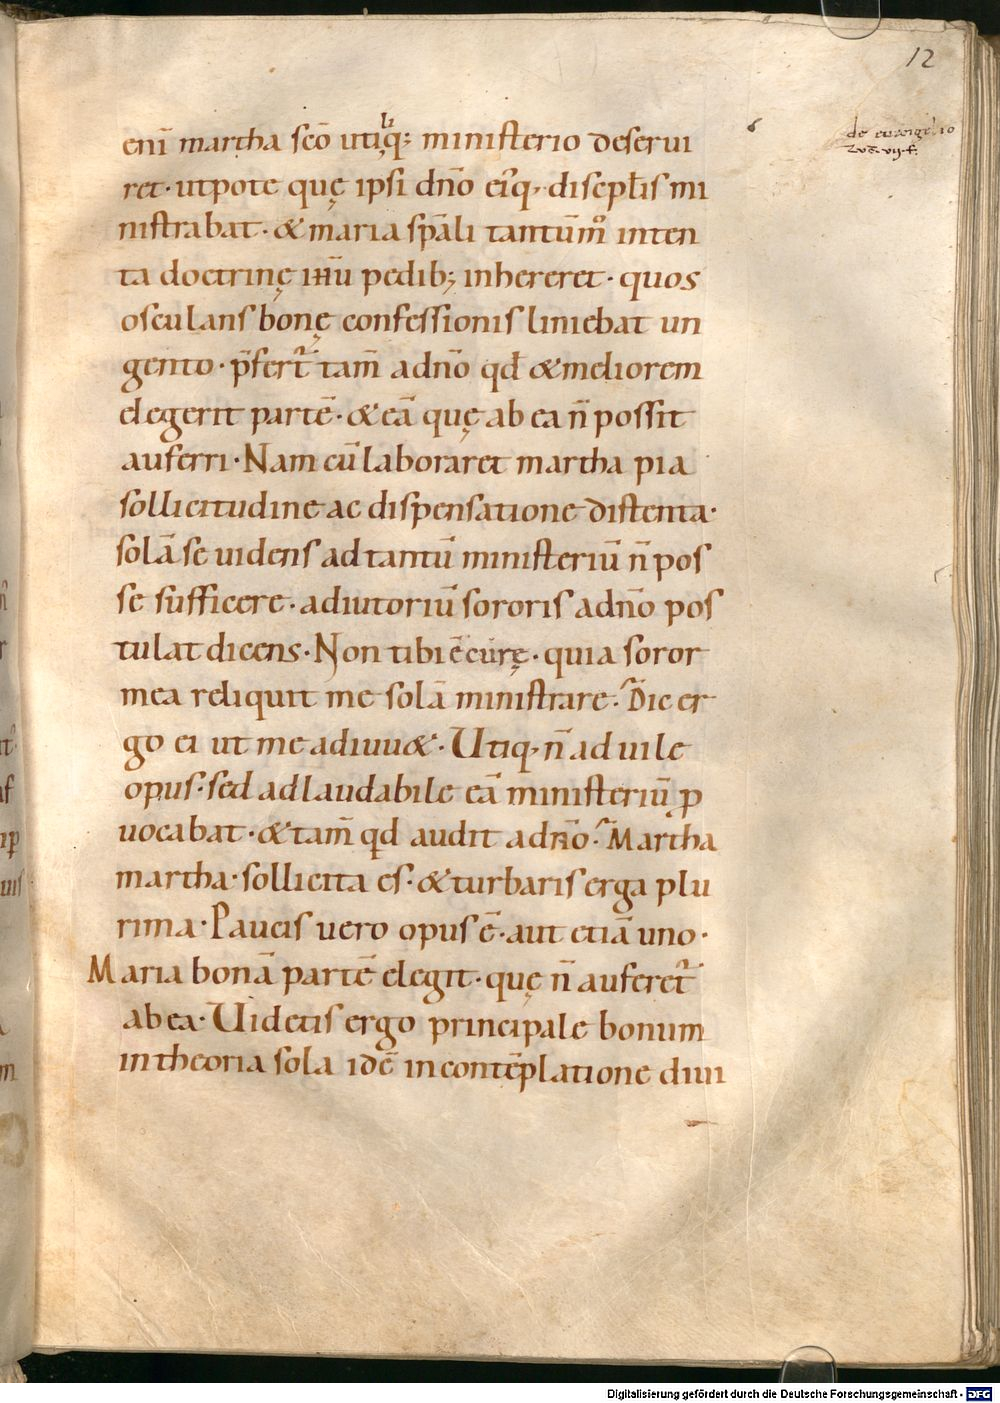 12
de euangelio
enī martha scō utiq; ministerio deserui
li
ret · utpote quę ipsi dn̄o ei'q, discipl̄is mi
nistrabat · & maria spāli tantūmͦ inten
ta doctrinę ih̄u pedib; inhereret · quos
osculans bonę confessionis liniebat un
gento · p̄fert᷑ tam̄ a dn̄o qđ & meliorem
elegerit partē · & eā quę ab ea n̄ possit
auferri · Nam cū laboraret martha pia
sollicitudine ac dispensatione distenta ·
solā se uidens ad tantū ministeriū n̄ pos
se sufficere · adiutoriū sororis a dn̄o pos
tulat dicens · Non tibi ē curę · quia soror
mea reliquit me solā ministrare · Dic er
go ei ut me adiuu& · Utiq, n̄ ad uile
opus · sed ad laudabile eā ministeriū ꝓ
uocabat · & tam̄ qđ audit a dn̄o · Martha
martha · sollicita es · & turbaris erga plu
rima · Paucis uero opus ē · aut etiā uno ·
Maria bonā partē elegit · quę n̄ auferet᷑
ab ea · Uidetis ergo principale bonum
in theoria sola idē in contēplatione diui
Digitalisierung gefördert durch die Deutsche Forschungsgemeinschaft - DFG